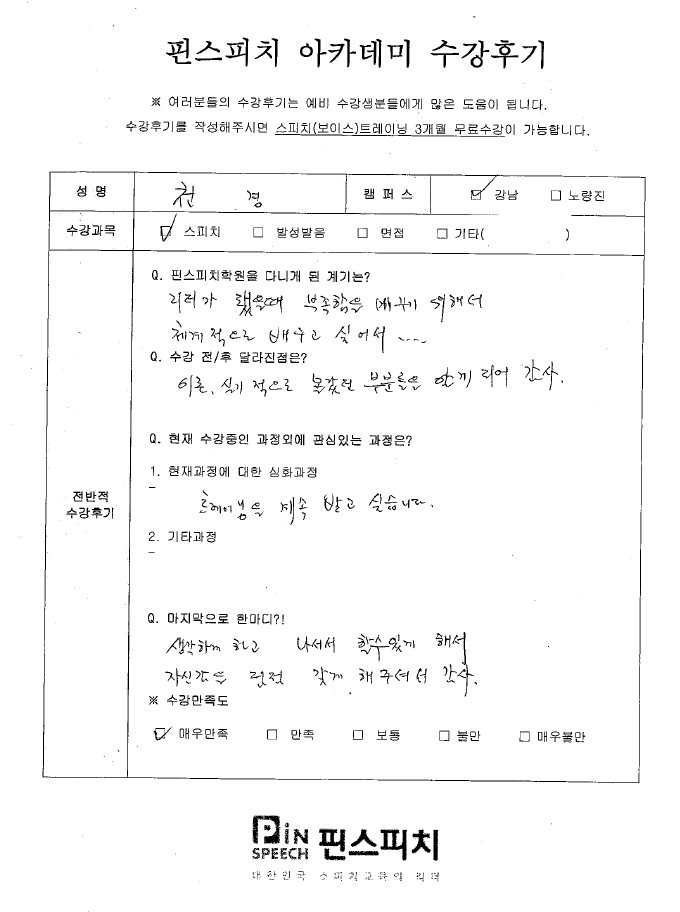 핀스피치 아카데미 수강후기
※ 여러분들의 수강후기는 예비 수강생분들에게 많은 도움이 됩니다.
수강후기를 작성해주시면 스피치(보이스)트레이닝 3개월 무료수강이 가능합니다.
성 명 천 경 캠 퍼 스 ☑ 강남 □ 노량진
수강과목 ☑ 스피치 □ 발성발음 □ 면접 □ 기타( )
Q. 핀스피치학원을 다니게 된 계기는?
리더가 됐을때 부족함을 채우기 위해서
체계적으로 배우고 싶어서 ....
Q. 수강 전/후 달라진점은?
이론, 실기 적으로 몰랐던 부분들을 알게 되어 감사.
Q. 현재 수강중인 과정외에 관심있는 과정은?
1. 현재과정에 대한 심화과정
-
트레이닝을 계속 받고 싶습니다.
2. 기타과정
-
전반적
수강후기
Q. 마지막으로 한마디?!
생각하게 하고 나서서 할수있게 해서
자신감을 갖게 해주셔서 감사.
※ 수강만족도
☑ 매우만족 □ 만족 □ 보통 □ 불만 □ 매우불만
PiN
SPEECH
핀스피치
대한민국 스피치교육의 리더